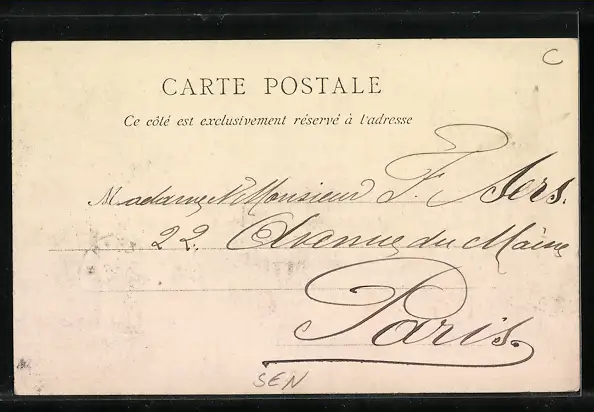 C
CARTE POSTALE
Ce côté est exclusivement réservé à l'adresse
Madame & Monsieur F. Sers.
22. Avenue du Maine
Paris.
SEN